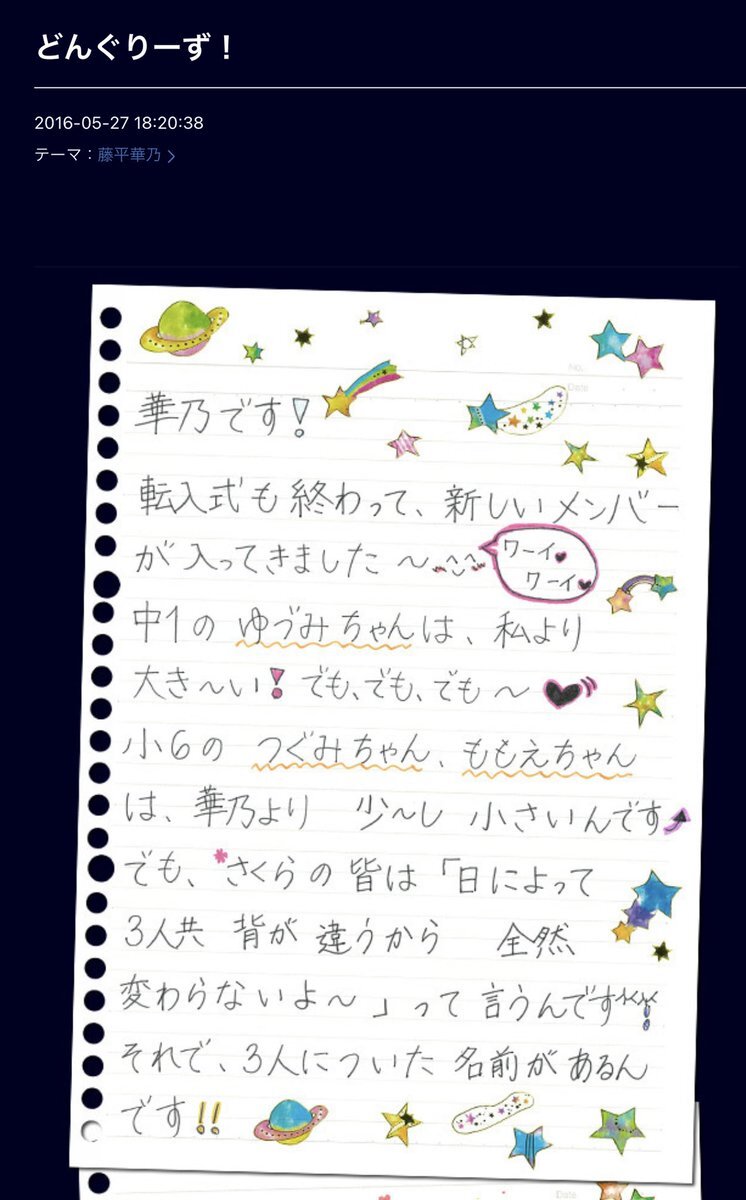 どんぐりーず！
2016-05-27 18:20:38
テーマ：藤平華乃 >
No.
Date
華乃です！
転入式も終わって、新しいメンバー
が入ってきました〜^^
ワーイ♥
ワーイ♥
中1の ゆづみちゃんは、私より
大き〜い！でも、でも、でも〜♥
小6の つぐみちゃん、ももえちゃん
は、華乃より 少〜し 小さいんです
でも、*さくらの皆は「日によって
3人共 背が違うから 全然
変わらないよ〜」って言うんです
それで、3人についた名前があるん
です!!
Date